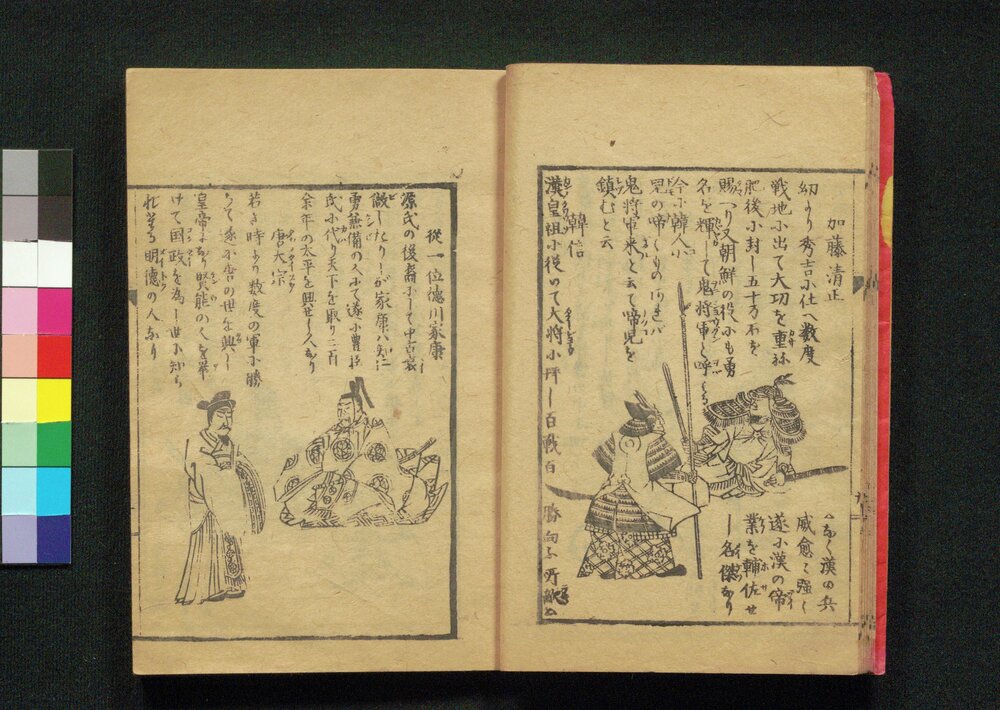 加藤清正
幼より秀吉に仕へ数度
戦地に出て大功を重ね
肥後に封し五十万石を
賜へり又朝鮮の役にも勇
名を輝して鬼将軍と呼る
今に韓人小
児の啼くもの
鬼将軍来と云て啼児を
鎮むと云
韓信
漢皇祖に従ひて大将に拝し百戦百勝向ふ所敵
なく漢の兵
威愈々強し
遂に漢の帝
業を輔佐せ
し名傑なり
従一位徳川家康
源氏の後裔にして中古衰
微したりしが家康ハ知仁
勇兼備の人にて遂に豊臣
氏に代り天下を取り二百
余年の太平を興せし人なり
唐太宗
若き時より数度の軍に勝
ちて遂に唐の世を興し
皇帝となり賢能の人を挙
けて国政を為し世に知ら
れたる明徳の人なり